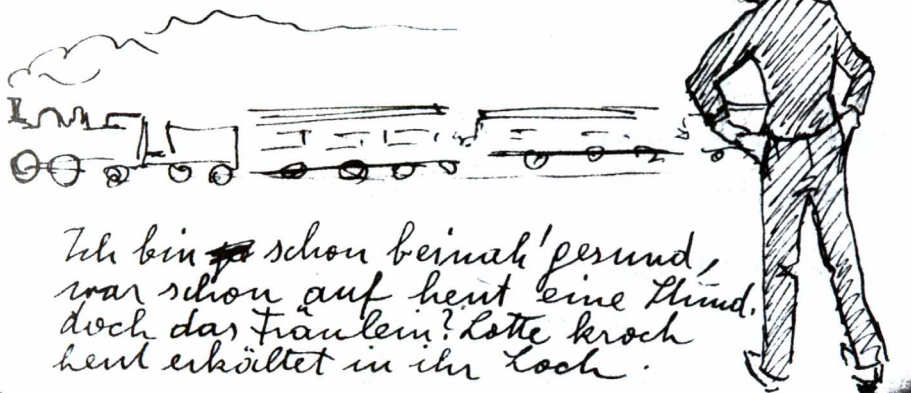 Ich bin schon beinah' gesund,
war schon auf heut eine Stund.
doch das Fräulein? Lotte kroch
heut erkältet in ihr Loch.